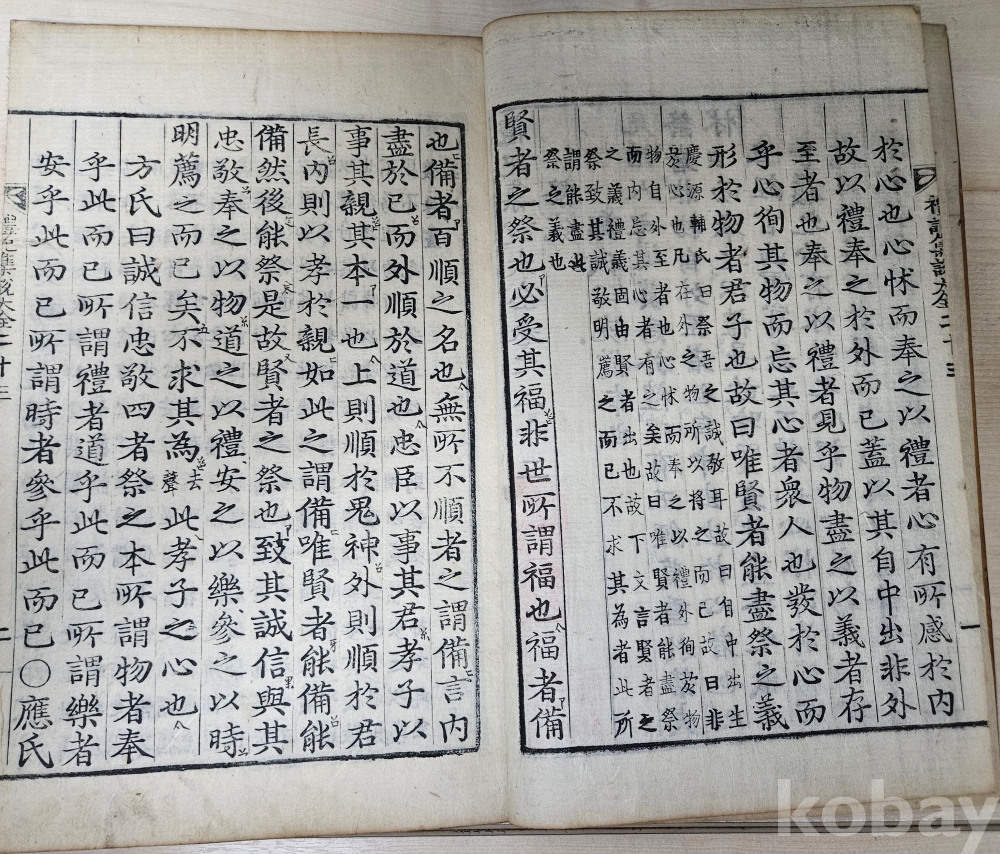 禮記集說大全二十三 一
於心也心怵而奉之以禮者心有所感於內
故以禮奉之於外而已蓋以其自中出非外
至者也奉之以禮者見乎物盡之以義者存
乎心徇其物而忘其心者衆人也發於心而
形於物者君子也故曰唯賢者能盡祭之義
慶源輔氏曰祭吾之誠敬耳故曰自中出生
於心也凡在外之物所以将之而已故曰非
物自外至者也心怵而奉之以禮外徇於物
而內忘其心者有之矣故曰唯賢者能盡祭
之義禮義固由賢者出也故下文言賢者之
祭致其誠敬明薦之而已不求其為者此所
謂能盡此
祭之義也
賢者之祭也必受其福非世所謂福也福者備
也備者百順之名也無所不順者之謂備言內
盡於己而外順於道也忠臣以事其君孝子以
事其親其本一也上則順於鬼神外則順於君
長內則以孝於親如此之謂備唯賢者能備能
備然後能祭是故賢者之祭也致其誠信與其
忠敬奉之以物道之以禮安之以樂參之以時
明薦之而已矣不求其為去聲此孝子之心也
方氏曰誠信忠敬四者祭之本所謂物者奉
乎此而已所謂禮者道乎此而已所謂樂者
安乎此而已所謂時者參乎此而已○應氏
禮記集說大全二十三 二
kobay